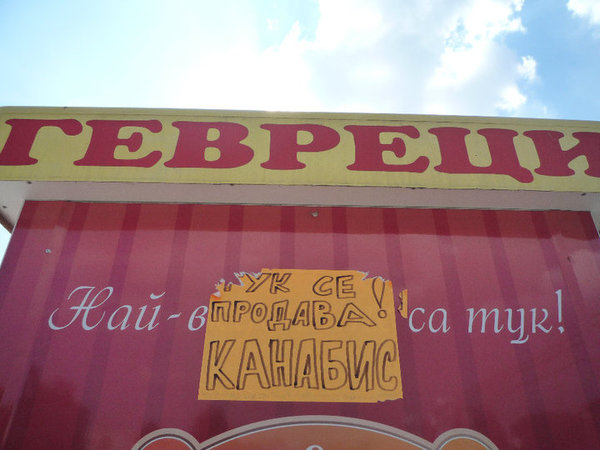 ГЕВРЕЦИ
Най-в са тук!
УК СЕ
ПРОДАВА!
КАНАБИС